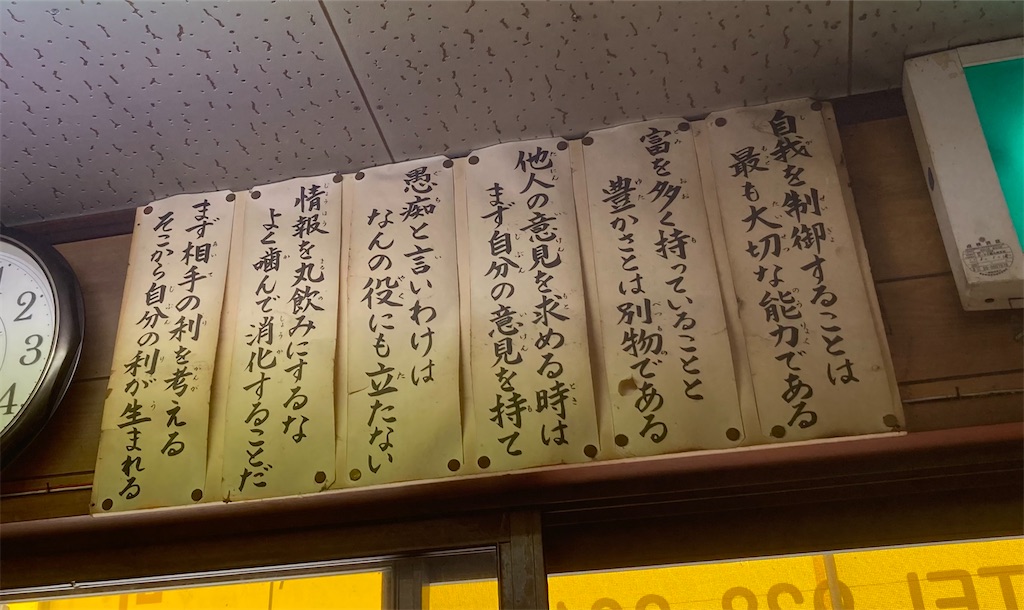 自我を制御することは
最も大切な能力である
富を多く持っていることと
豊かさとは別物である
他人の意見を求める時は
まず自分の意見を持て
愚痴と言いわけは
なんの役にも立たない
情報を丸飲みにするな
よく噛んで消化することだ
まず相手の利を考える
そこから自分の利が生まれる
2
3
4
TEL